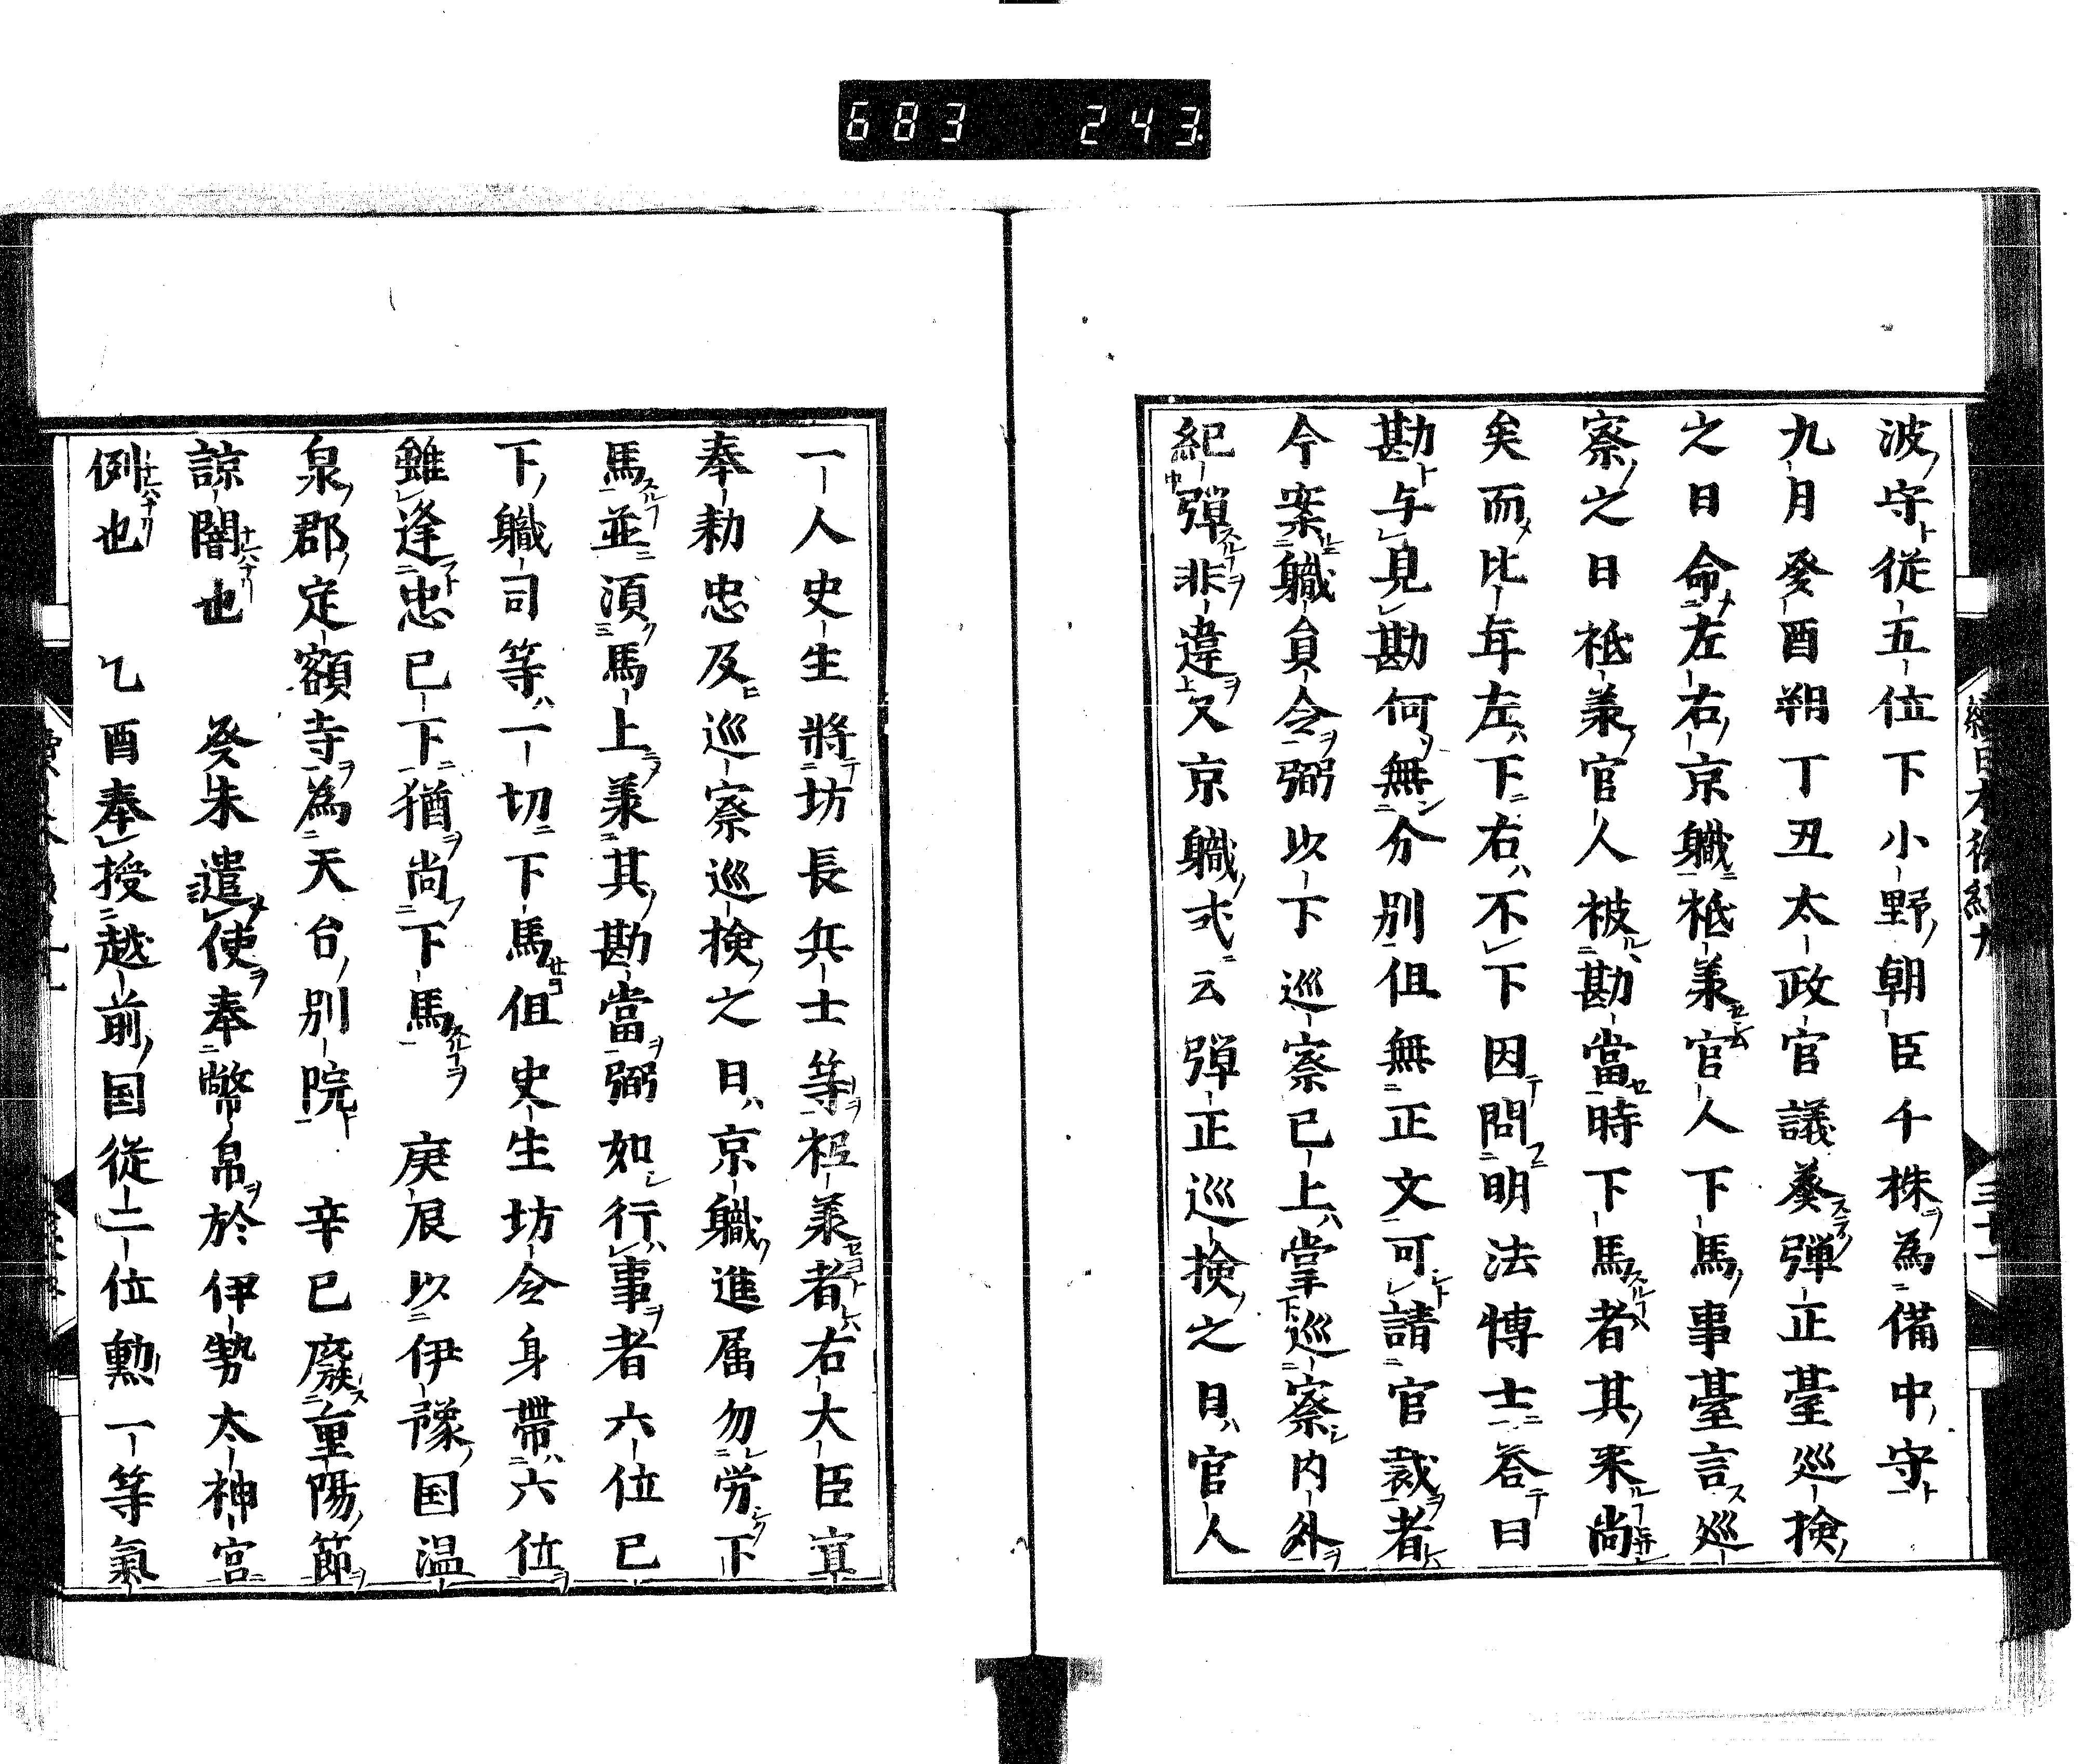 683 243
波守從五位下小野朝臣千株為備中守
九月癸酉朔丁丑太政官議奏弾正臺巡検
之日命左右京職祗羕官人下馬事臺言巡
察之日祗羕官人被勘當時下馬者其来尚
矣而比年左下右不下因問明法博士荅曰
勘与見勘何無分別但無正文可請官裁者
今案職貟令弼以下巡察已上掌巡察内外
紀弾非違又京職式云弾正巡検之日官人
一人史生將坊長兵士等祗羕者右大臣宣
奉勅忠及巡察巡検之日京職進属勿労下
馬並湏馬上羕其勘當弼如行事者六位已
下職司等一切下馬但史生坊令身帶六位
雖逢忠已下猶尚下馬 庚辰以伊豫国温
泉郡定額寺為天台別院 辛巳廢重陽節
諒闇也 癸未遣使奉幣帛於伊勢太神宮
例也 乙酉奉授越前国從二位勲一等氣